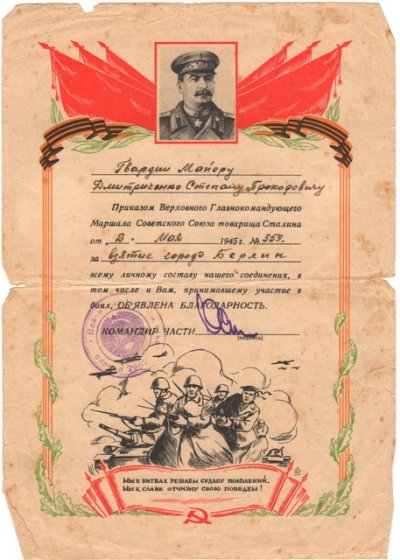 Гвардии Майору
Дмитриченко Степану Прохоровичу
Приказом Верховного Главнокомандующего
Маршала Советского Союза товарища Сталина
от 2 - Мая 1945 г. № 359.
за взятие города Берлин
всему личному составу нашего соединения, в
том числе и Вам, принимавшему участие в
боях, ОБ'ЯВЛЕНА БЛАГОДАРНОСТЬ.
КОМАНДИР ЧАСТИ
(подпись)
МЫ В БИТВАХ РЕШАЕМ СУДЬБУ ПОКОЛЕНИЙ,
МЫ К СЛАВЕ ОТЧИЗНУ СВОЮ ПОВЕДЕМ!